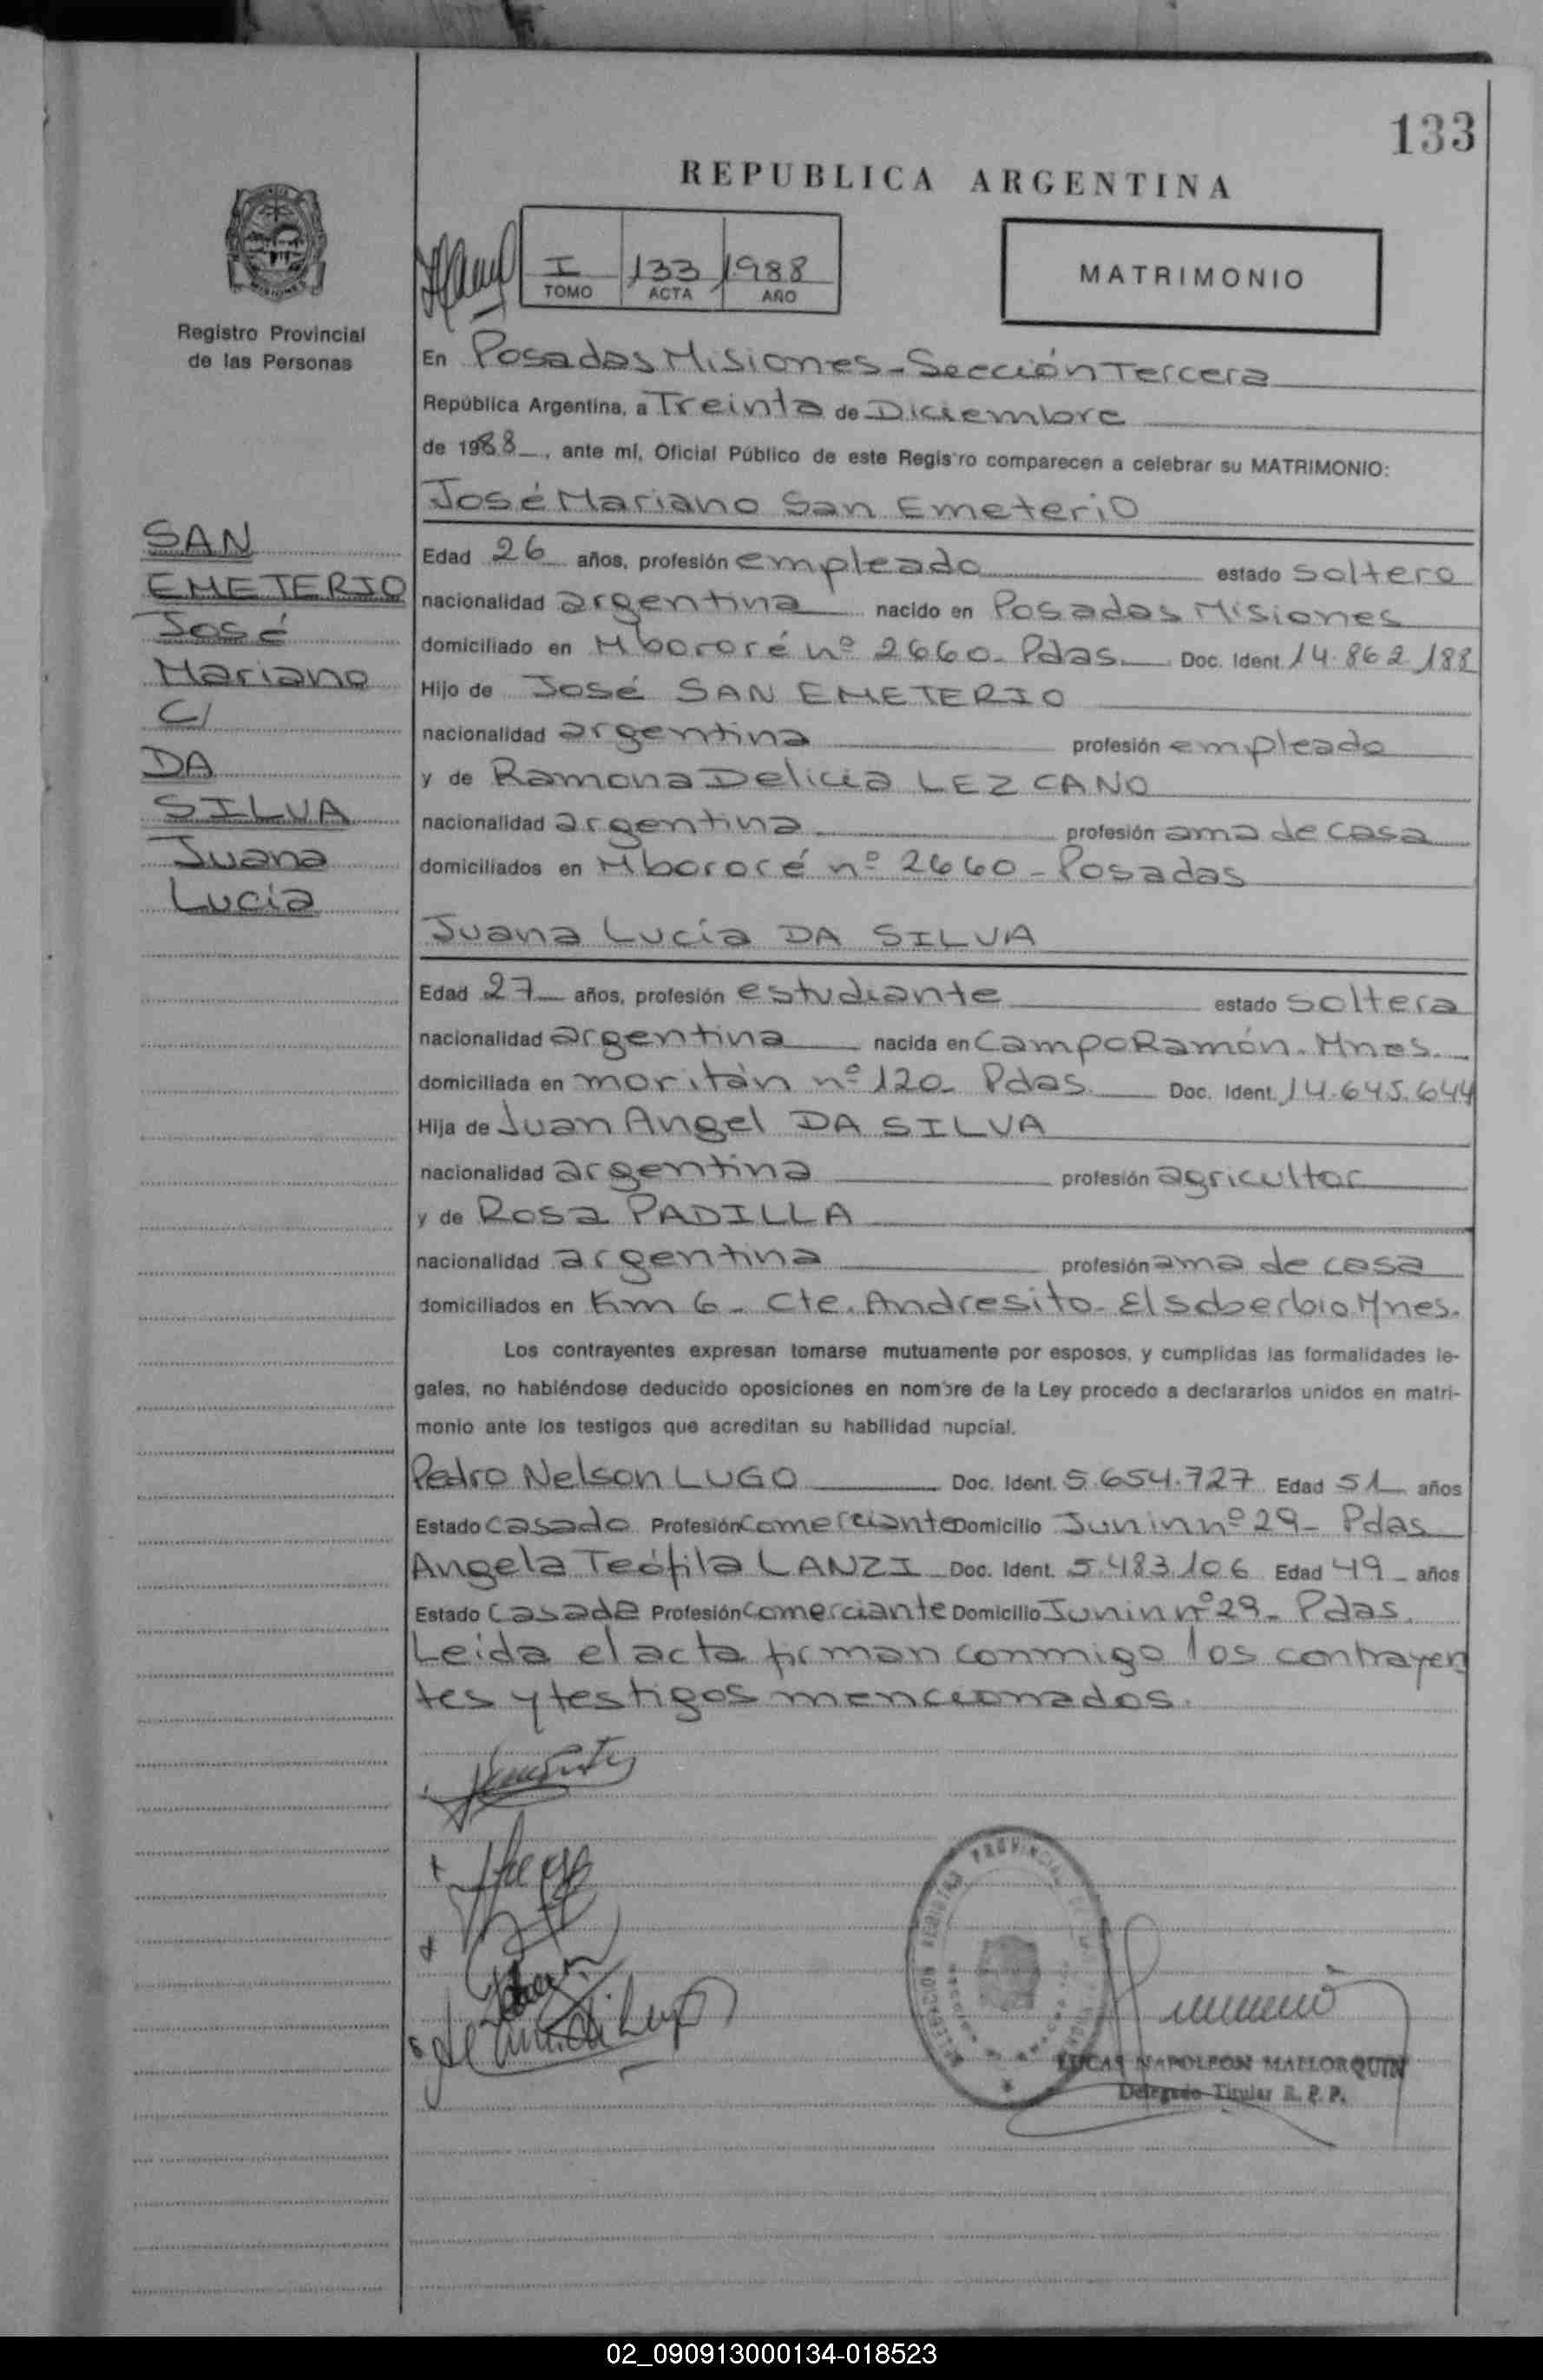 133
REPUBLICA ARGENTINA
I 133 1988
TOMO ACTA AÑO
MATRIMONIO
Registro Provincial
de las Personas
En Posadas Misiones - Sección Tercera
República Argentina, a Treinta de Diciembre
de 1988, ante mí, Oficial Público de este Registro comparecen a celebrar su MATRIMONIO:
José Mariano San Emeterio
SAN
EMETERIO
José
Mariano
C/
DA
SILVA
Juana
Lucía
Edad 26 años, profesión empleado estado soltero
nacionalidad argentina nacido en Posadas Misiones
domiciliado en Mbororé nº 2660 - Pdas. Doc. Ident. 14.862.188
Hijo de José SAN EMETERIO
nacionalidad argentina profesión empleado
y de Ramona Delicia LEZCANO
nacionalidad argentina profesión ama de casa
domiciliados en Mbororé nº 2660 - Posadas
Juana Lucía DA SILVA
Edad 27 años, profesión estudiante estado soltera
nacionalidad argentina nacida en Campo Ramón. Mnes.
domiciliada en moritán nº 120 - Pdas. Doc. Ident. 14.645.644
Hija de Juan Angel DA SILVA
nacionalidad argentina profesión agricultor
y de Rosa PADILLA
nacionalidad argentina profesión ama de casa
domiciliados en Km 6 - Cte. Andresito - El Soberbio Mnes.
Los contrayentes expresan tomarse mutuamente por esposos, y cumplidas las formalidades le-
gales, no habiéndose deducido oposiciones en nombre de la Ley procedo a declararlos unidos en matri-
monio ante los testigos que acreditan su habilidad nupcial.
Pedro Nelson LUGO Doc. Ident. 5.654.727 Edad 51 años
Estado casado Profesión comerciante Domicilio Junin nº 29 - Pdas
Angela Teófila LANZI Doc. Ident. 5.483.106 Edad 49 años
Estado casada Profesión comerciante Domicilio Junin nº 29 - Pdas.
Leida el acta firman conmigo los contrayen
tes y testigos mencionados.
LUCAS NAPOLEON MALLORQUIN
Delegado Titular R. P. P.
02_090913000134-018523